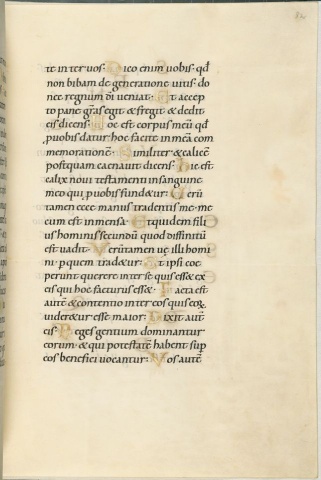 te inter uos· Dico enim uobis· qđ
non bibam de generatione uitis· do
nec regnum dī ueniat· Et accep
to pane grās egit & fregit & dedit
eis dicens· Hoc est corpus meū qđ
p uobis datur hoc facite in meā com
memorationē· Similiter & calicē
postquam caenauit dicens· Hic est
calix noui testamenti in sanguine
meo qui p uobis fund&ur· Uerū
tamen ecce manus tradentis me· me
cum est in mensa· Et quidem fili
us hominis secundū quod diffinitū
est uadit· Uerūtamen uę illi homi
ni· p quem trad&ur· Et ipsi coe
perunt querere inter se quis ess& ex
eis qui hoc facturus ess&· Facta est
autē & contentio inter eos quis eoꝝ
uider&ur esse maior· Dixit aut̄
eis· Reges gentium dominantur
eorum· & qui potestatē habent sup
eos benefici uocantur· Vos autē